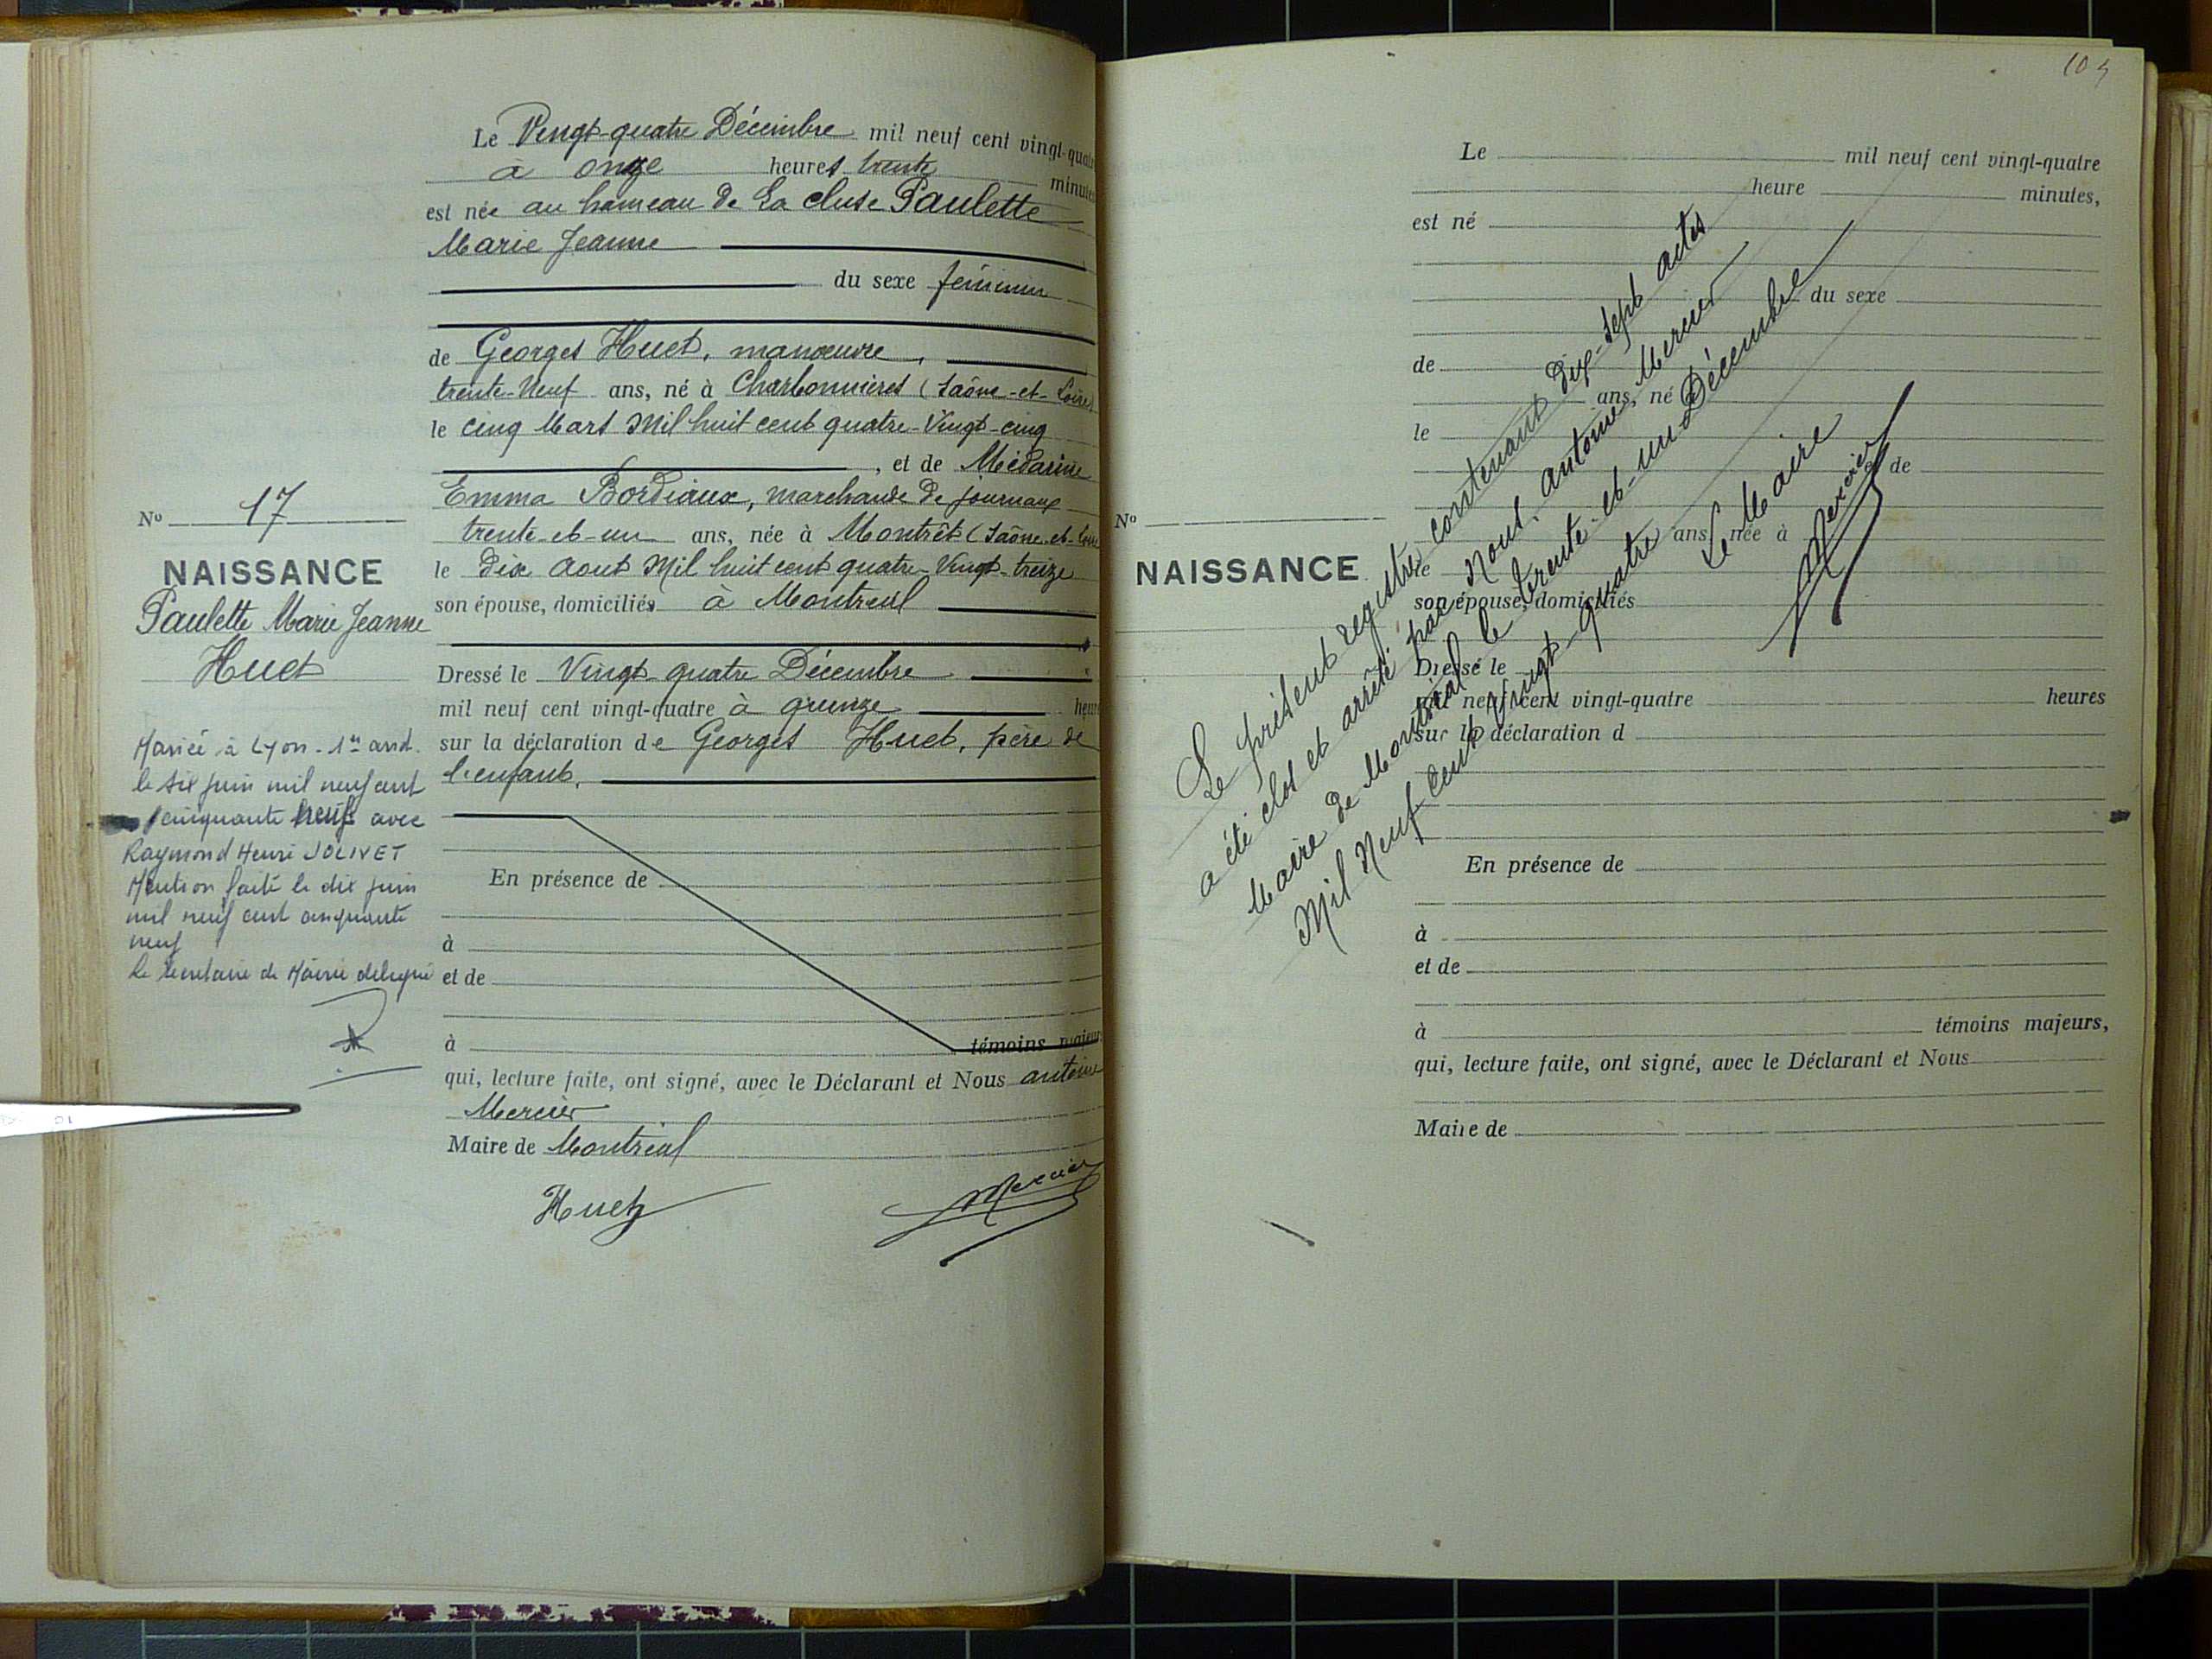 Le Vingt-quatre Décembre mil neuf cent vingt-quatre
à onze heures trente minutes
est née au hameau de La cluse Paulette
Marie Jeanne
du sexe féminin
de Georges Huet, manœuvre,
trente-neuf ans, né à Charbonnières (Saône-et-Loire)
le cinq Mars Mil huit cent quatre-Vingt-cinq
, et de Médarine
Emma Bordiaux, marchande de journaux
trente-et-un ans, née à Montrêt (Saône-et-Loire
le dix Aout Mil huit cent quatre-Vingt-treize
son épouse, domiciliés à Montreal
Dressé le Vingt-quatre Décembre
mil neuf cent vingt-quatre à quinze heures
sur la déclaration de Georges Huet, père de
l'enfant.
En présence de
à
et de
à témoins majeurs
qui, lecture faite, ont signé, avec le Déclarant et Nous Antoine
Mercier
Maire de Montréal
Huet
Mercier
No 17
NAISSANCE
Paulette Marie Jeanne
Huet
Mariée à Lyon - 1er arrd.
le six juin mil neuf cent
cinquante neuf avec
Raymond Henri JOLIVET
Mention faite le dix juin
mil neuf cent cinquante
neuf
Le secrétaire de Mairie délégué
104
Le mil neuf cent vingt-quatre
heure minutes,
est né
du sexe
de
ans, né à
le
et de
ans, née à
le
son épouse, domiciliés
Dressé le
mil neuf cent vingt-quatre heures
sur la déclaration d
En présence de
à
et de
à témoins majeurs,
qui, lecture faite, ont signé, avec le Déclarant et Nous
Maire de
No
NAISSANCE
Le présent registre contenant dix-sept actes
a été clos et arrêté par Nous, Antoine Mercier
Maire de Montréal le trente-et-un Décembre
Mil Neuf Cent Vingt-quatre
Le Maire
Mercier